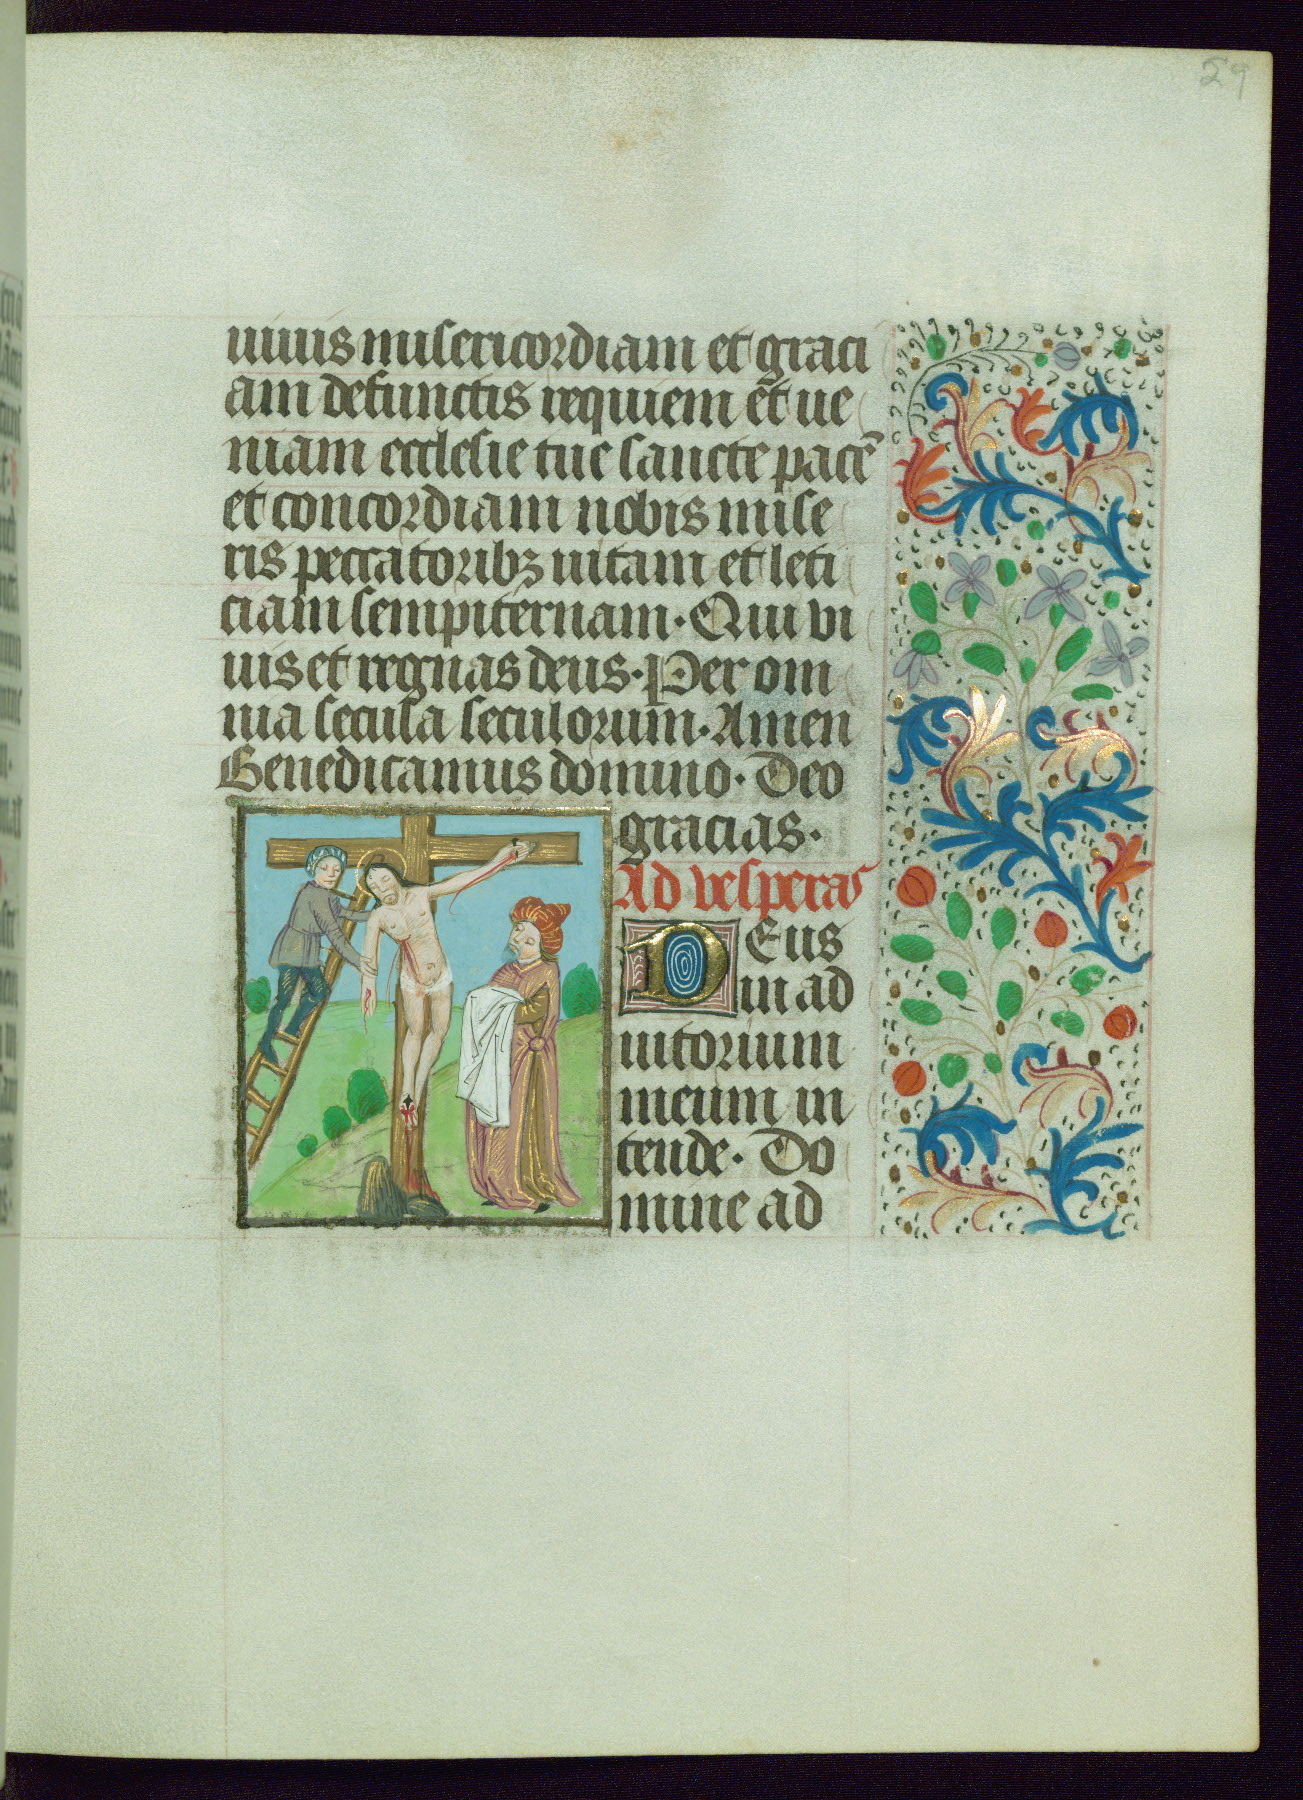 29
uiuis misericordiam et graci
am defunctis requiem et ue
niam ecclesie tue sancte pacē
et concordiam nobis mise
ris peccatoribꝫ uitam et leti
ciam sempiternam · Qui vi
uis et regnas deus · Per om
nia secula seculorum · Amen
Benedicamus domino · Deo
gracias ·
Ad vesperas
DEus
in ad
iutorium
meum in
tende · Do
mine ad